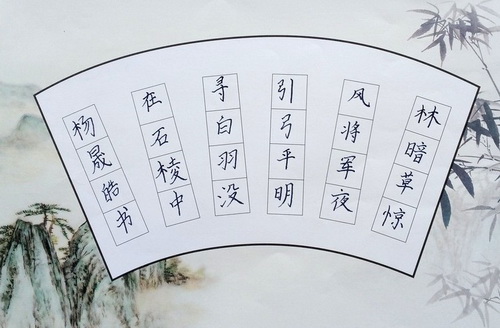 林暗草惊
风将军夜
引弓平明
寻白羽没
在石棱中
杨晟皓书